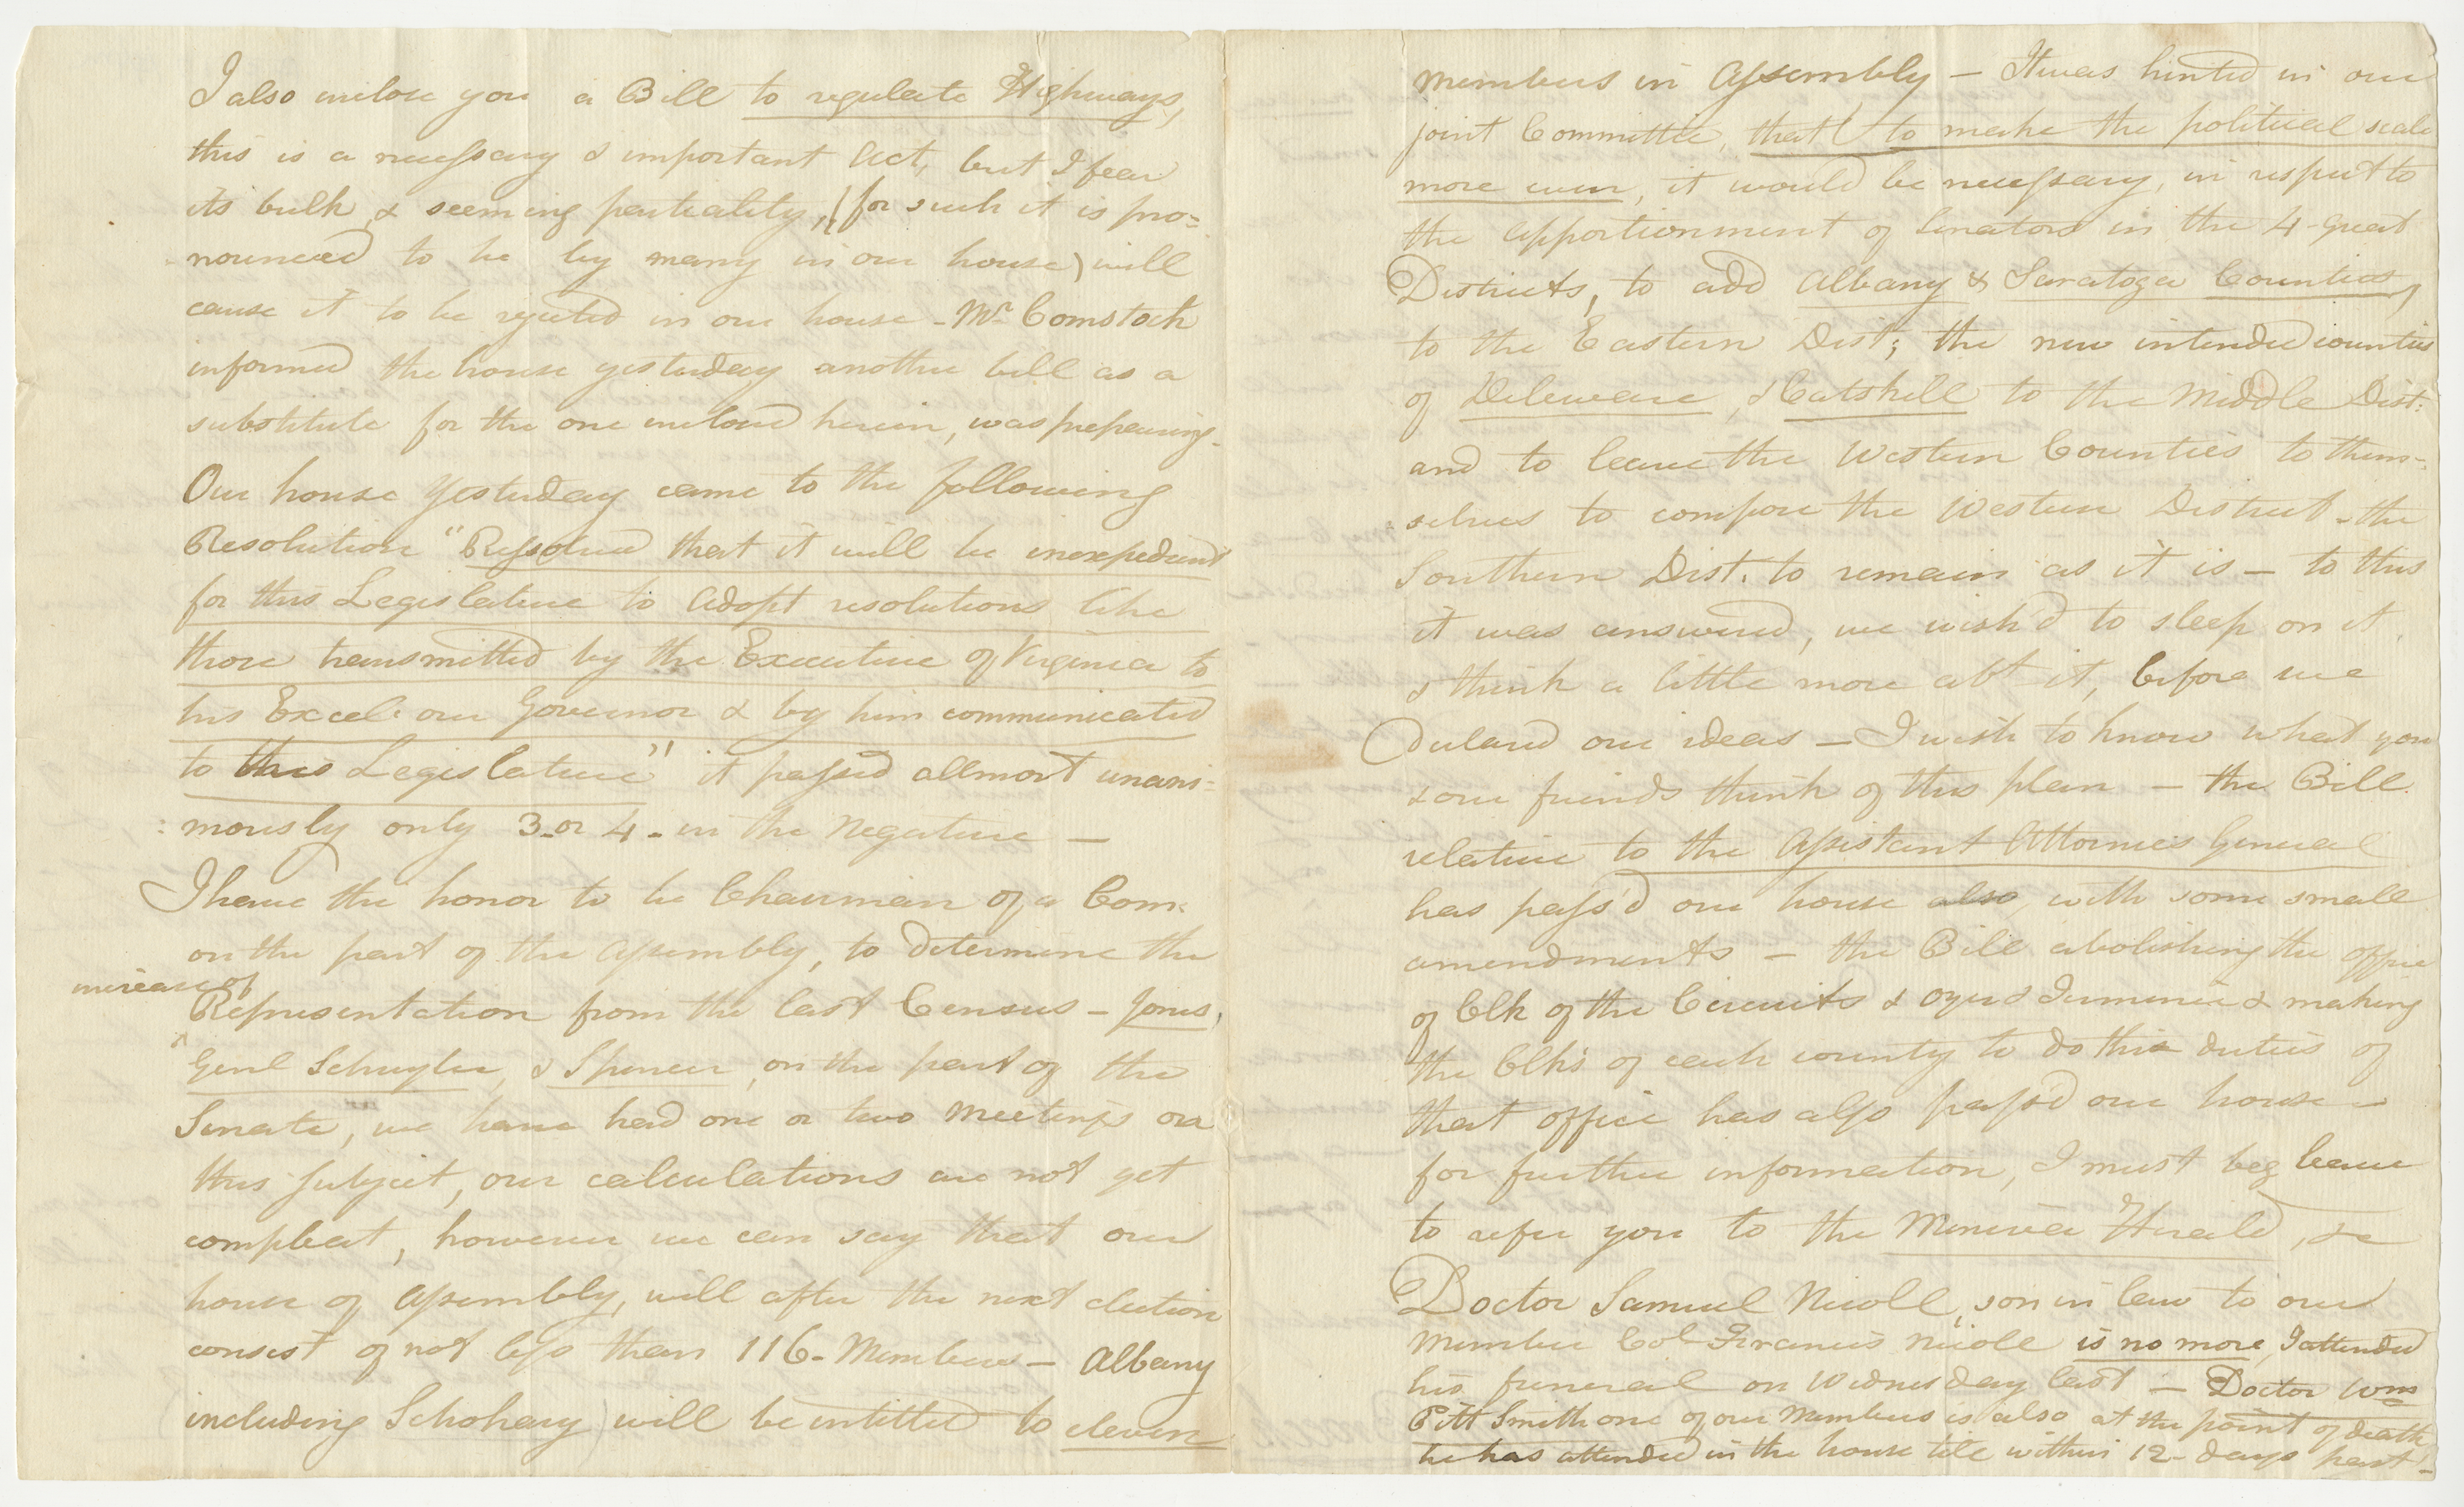 I also inclose you a Bill to regulate Highways,
this is a necessary & important Act, but I fear
its bulk & seeming partiality, (for such it is pro=
nounced to be by many in our house) will
cause it to be rejected in our house - Mr Comstock
informed the house yesterday another bill as a
substitute for the one inclosed herein, was prepairing -
Our house yesterday came to the following
Resolution "Resolved that it will be inexpedient
for this Legislature to adopt resolutions like
those transmitted by the Executive of Virginia to
his Excel: our Governor & by him communicated
to this Legislature" it passed allmost unani=
:mously only 3 or 4 - in the Negative —
I have the honor to be Chairman of a Com:
on the part of the Assembly, to determine the
increase of
Representation from the last Census - Jones,
Genl Schuyler, & Spencer, on the part of the
Senate, we have had one or two Meetings on
this subject, our calculations are not yet
compleat, however we can say that our
house of Assembly, will after the next election
consist of not less than 116 - Members — Albany
including Schohary will be intitled to eleven
Members in Assembly — It was hinted in our
joint Committee, that to make the political scale
more even, it would be necessary, in respect to
the apportionment of Senators in the 4 great
Districts, to add Albany & Saratoga Counties,
to the Eastern Dist; the new intended counties
of Deleware, & Catskill to the Middle Dist:
and to leave the Western Counties to them=
:selves to compose the Western District - the
Southern Dist. to remain as it is — to this
it was answered, we wish'd to sleep on it,
& think a little more abt it, before we
Declared our ideas — I wish to know what you
& our friends think of this plan — the Bill
relative to the Assistant Attornies General
has pass'd our house also, with some small
amendments — the Bill abolishing the office
of Clk of the Circuits & Oyer & Terminer & making
the Clks of each county to do this duties of
that office has also pass'd our house —
for further information, I must beg leave
to refer you to the Minerva Herald, &c
Doctor Samuel Nicoll, son in law to our
Member Col Francis Nicoll is no more, I attended
his funeral on Wednesday last — Doctor Wm
Pitt Smith one of our Members is also at the point of death
he has attended in the house till within 12 - days past -